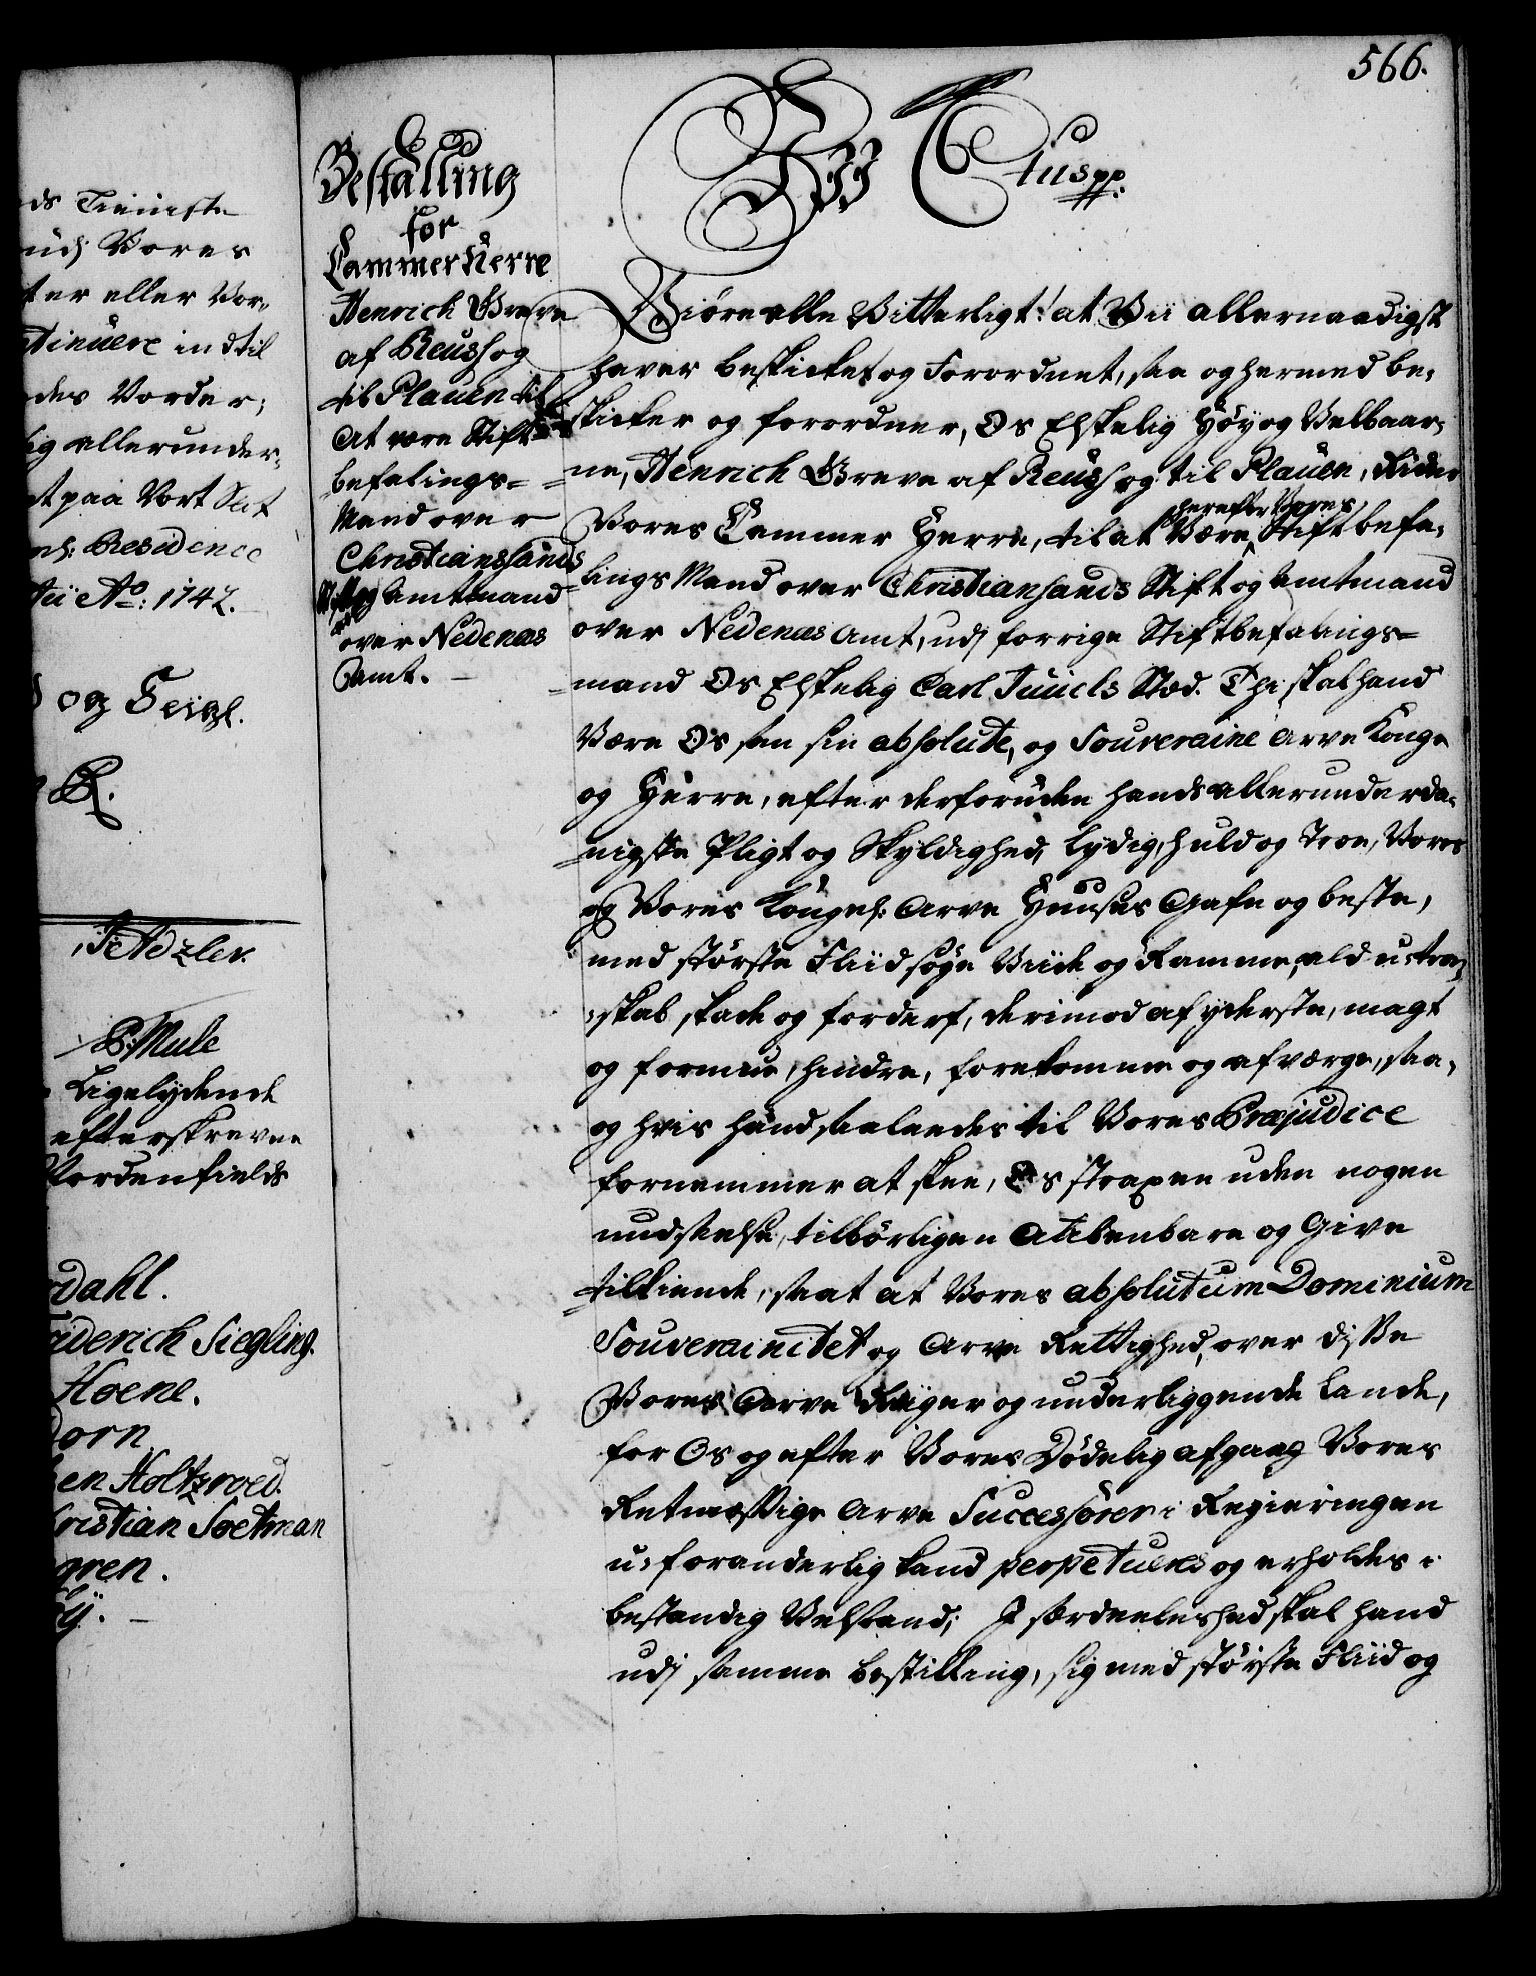 566.
ds Tieniste
udj Vores
ter eller Vor,,
tinuere indtil
des Vorder;
ig allerunder,
t paa Vort Slot
Residence
Ao: 1742.
og Seigl.
R.
P: Mule
Ligelydende
efterskrevne
Nordenfields
dahl.
riderich Siegling.
Hoene.
orn
en Holtzroed.
ristian Soetman
gren.
Bestalling
for
Cammer Herre
Henrich Greve
af Reuss og
til Plauen til
at være Stift-
befalings=
Mand over
Christianssands
Stift og Amtmand
over Nedenæs
Amt.
Wii Ctus pp:
Giøre alle Vitterligt: at Vii allernaadigst
haver beskicket og Forordnet, saa og hermed be,
skicker og forordner, Os Elskelig Høy og Velbaar,
ne, Henrich Greve af Reuss og til Plauen, Ridder
Vores Cammer Herre, til at Være herefter Vores Stiftbefa,
lings Mand over Christiansands Stift og Amtmand
over Nedenæs Amt, udj forrige Stiftbefalings=
mand Os Elskelig Carl Juuels Stæd. Thi skal hand
Være Os som sin absolute, og Souveraine Arve Konge
og Herre, efter derforuden hands allerunderda,
nigste Pligt og Skyldighed, lydig, huld og troe, Vores
og Vores Kongel: Arve Huuses Gafn og beste,
med største Fliid søge Viide og Ramme, ald u-troe,
skab skade og forderf, derimod af yderste, magt
og formue, hindre, forekomme og afværge, saa,
og hvis hand saaledes til Vores Præjudice
fornemmer at skee, Os strapen uden nogen
undseelse, tilbørligen Aabenbare og Give
tilkiende, saat at Vores absolutum Dominium
Souverainitet og Arve Rettighed, over disse
Vores Arve Riiger og underliggende Lande,
for Os og efter Vores Dødelig afgang Vores
Retmæssige Arve Successorer i Regieringen
u-foranderlig kand perpetueres og erholdes i
bestandig Velstand; I særdeeleshed skal hand
udj samme bestilling, sig med største Fliid og